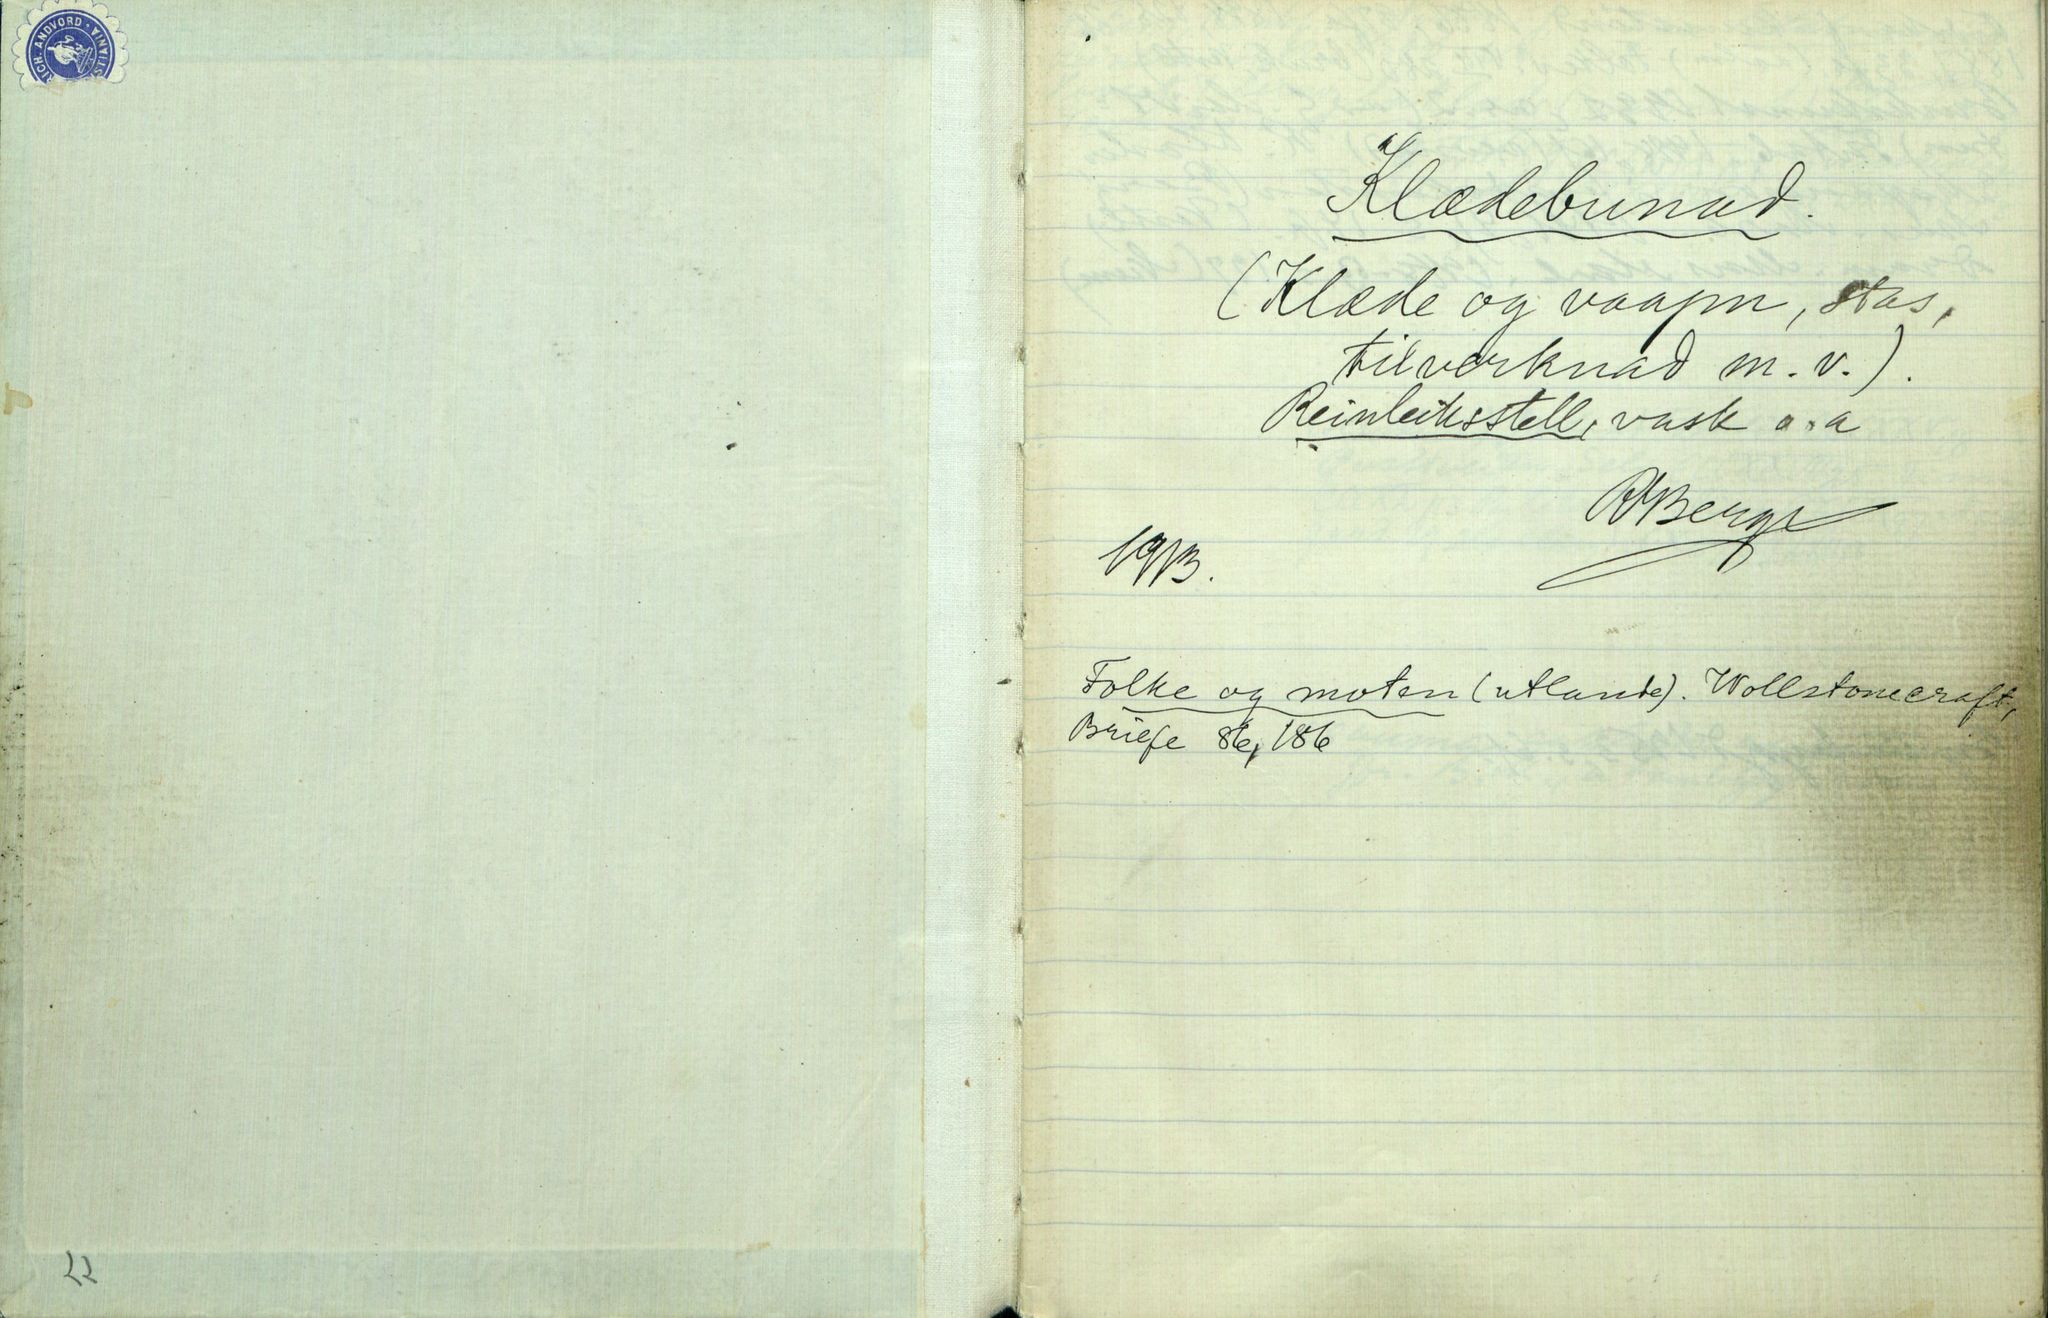 RICH. ANDVORD
STIANIA
Klædebunad.
(Klæde og vaapn, stas,
tilverknad m.v.).
Reinleiksstell, vask o.a
RBerge
1913.
Folke og moten (utlande). Wollstonecraft,
Briefe 86, 186
22